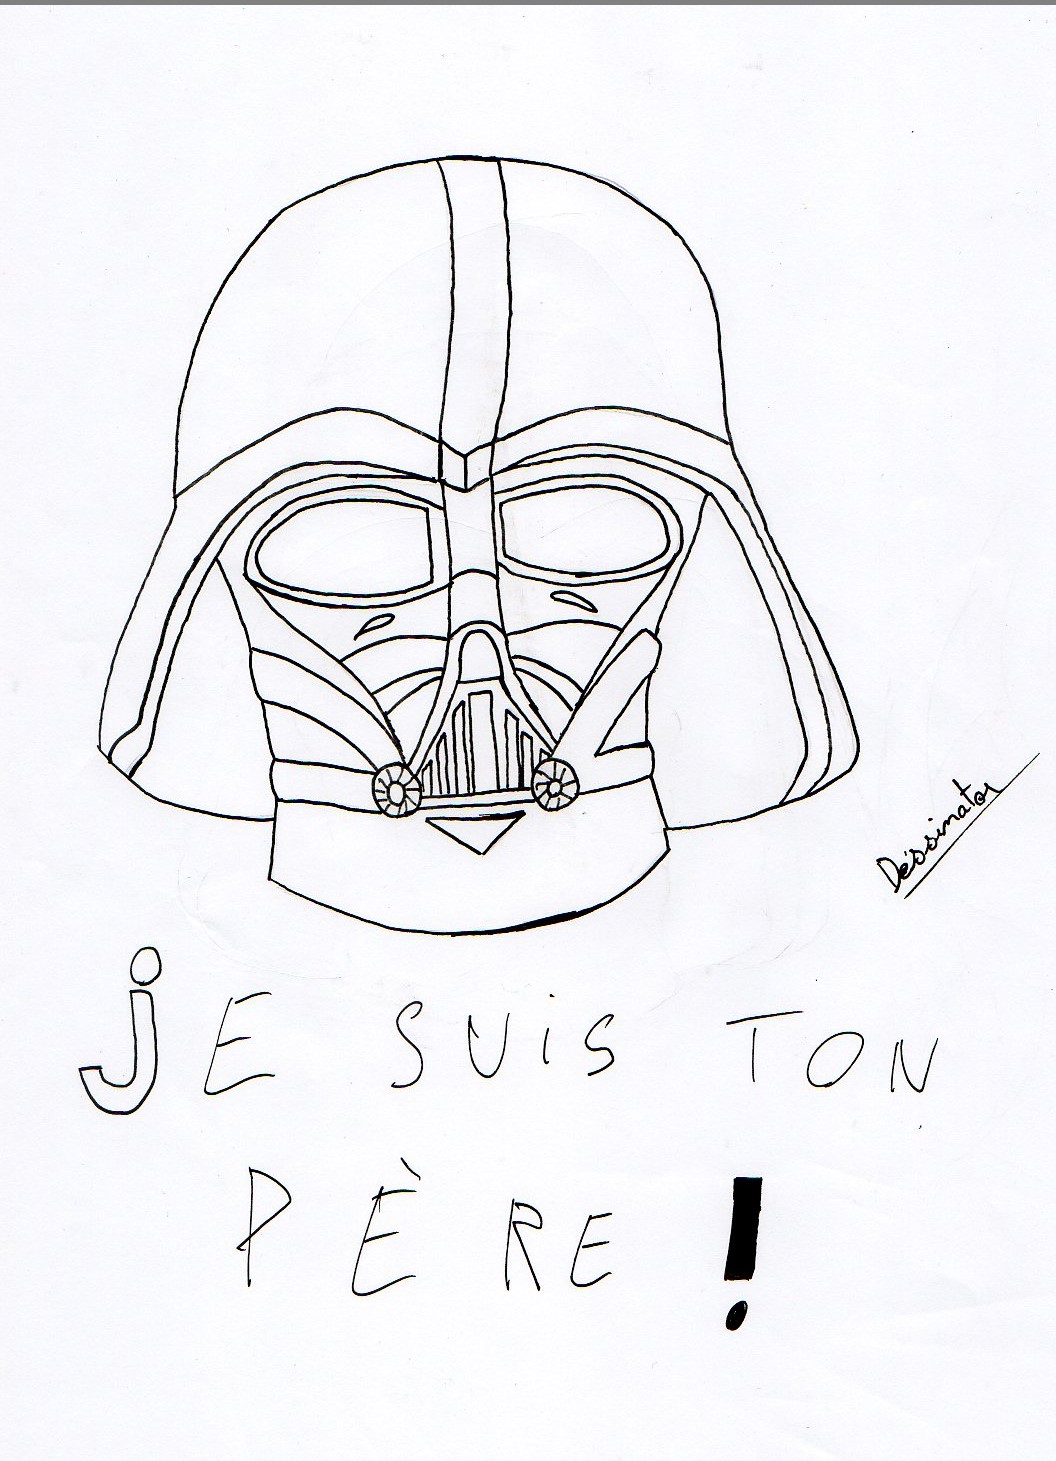 Déssinator
jE SUiS TON
PÈRE !